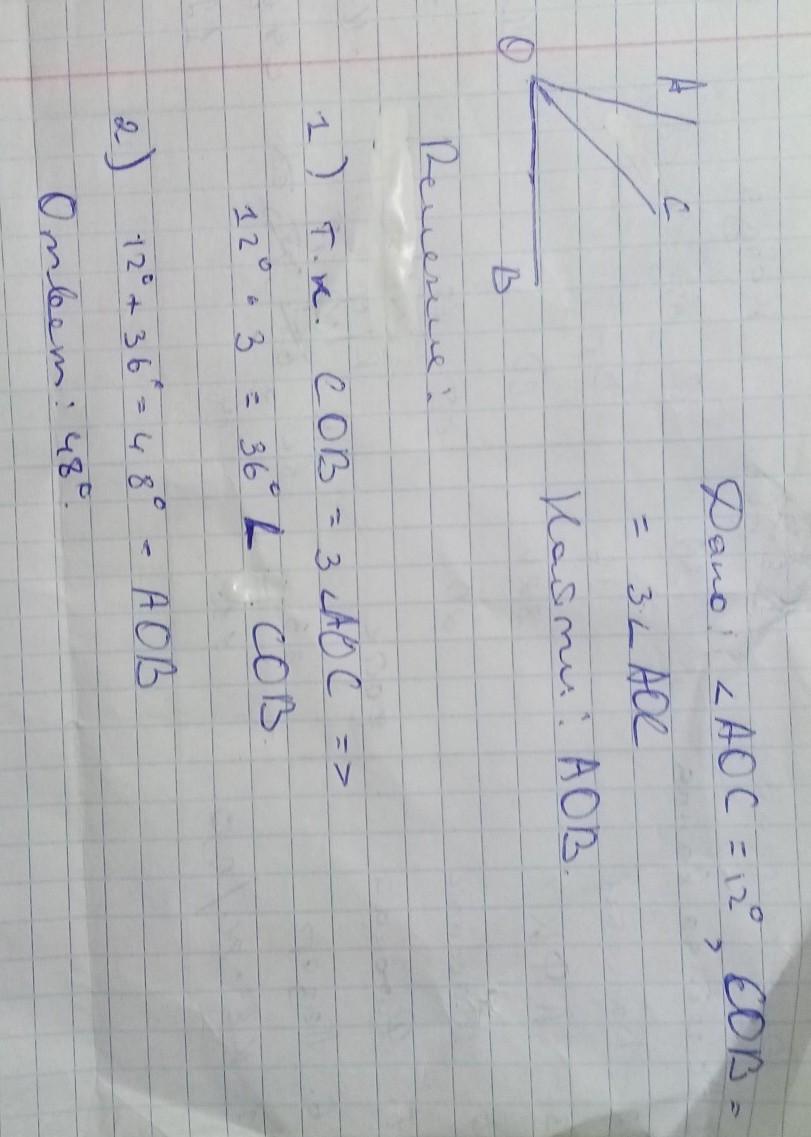 A
C
O
B
Дано: <AOC = 12°, COB =
= 3<AOC
Найти: AOB.
Решение:
1) т.к. COB = 3<AOC =>
12° • 3 = 36° L COB.
2) 12° + 36° = 48° - AOB
Ответ: 48°.